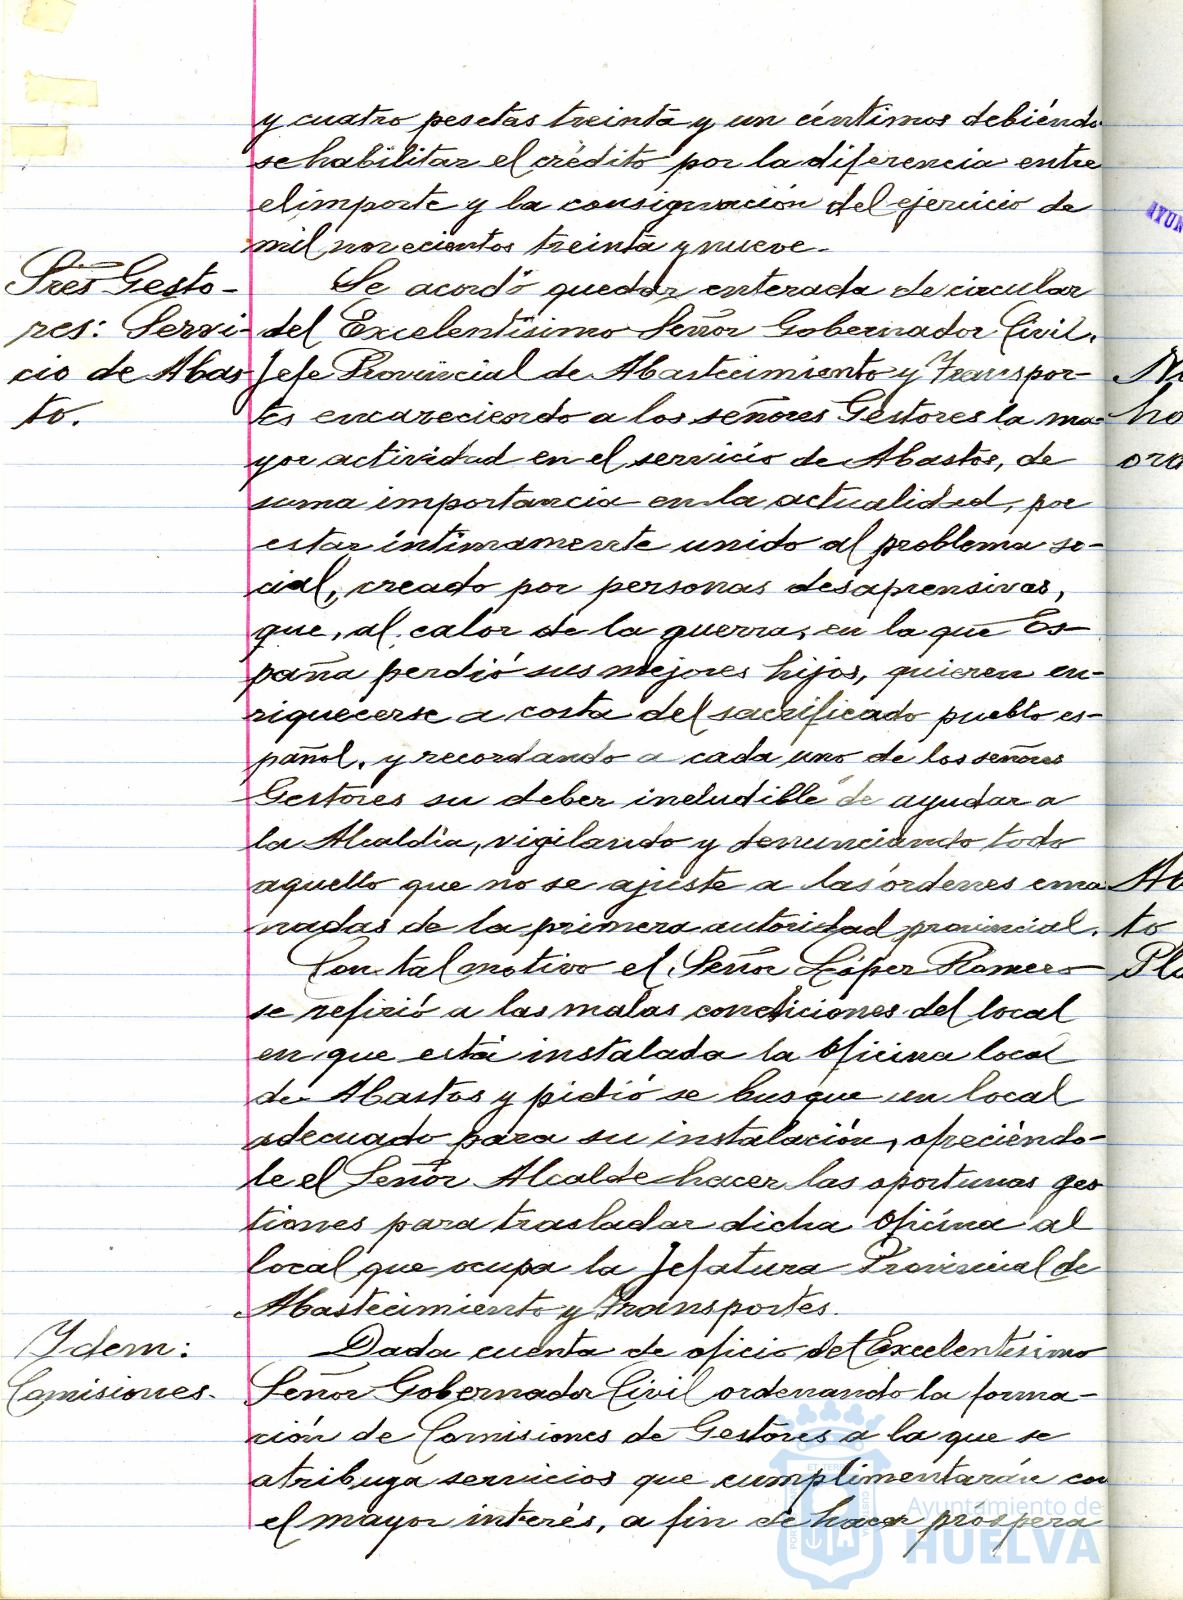 y cuatro pesetas treinta y un céntimos debiéndo
se habilitar el crédito por la diferencia entre
el importe y la consignación del ejercicio de
mil novecientos treinta y nueve.-
Sres Gesto-
res: Servi-
cio de Abas
to.
Se acordó quedar enterada de circular
del Excelentísimo Señor Gobernador Civil,
Jefe Provincial de Abastecimiento y Transpor-
tes encareciendo a los señores Gestores la ma-
yor actividad en el servicio de Abastos, de
suma importancia en la actualidad, por
estar íntimamente unido al problema so-
cial, creado por personas desaprensivas,
que, al calor de la guerra, en la que Es-
paña perdió sus mejores hijos, quieren en-
riquecerse a costa del sacrificado pueblo es-
pañol, y recordando a cada uno de los señores
Gestores su deber ineludible de ayudar a
la Alcaldía, vigilando y denunciando todo
aquello que no se ajuste a las órdenes ema
nadas de la primera autoridad provincial.
Con tal motivo el Señor López Romero
se refirió a las malas condiciones del local
en que está instalada la Oficina local
de Abastos y pidió se busque un local
adecuado para su instalación, ofreciéndo-
le el Señor Alcalde hacer las oportunas ges
tiones para trasladar dicha Oficina al
local que ocupa la Jefatura Provincial de
Abastecimiento y Transportes.
Ydem:
Comisiones.
Dada cuenta de oficio del Excelentísimo
Señor Gobernador Civil ordenando la forma-
ción de Comisiones de Gestores a la que se
atribuya servicios que cumplimentarán con
el mayor interés, a fin de hacer próspera
AYUN
ho
ora
to
Ayuntamiento de
HUELVA